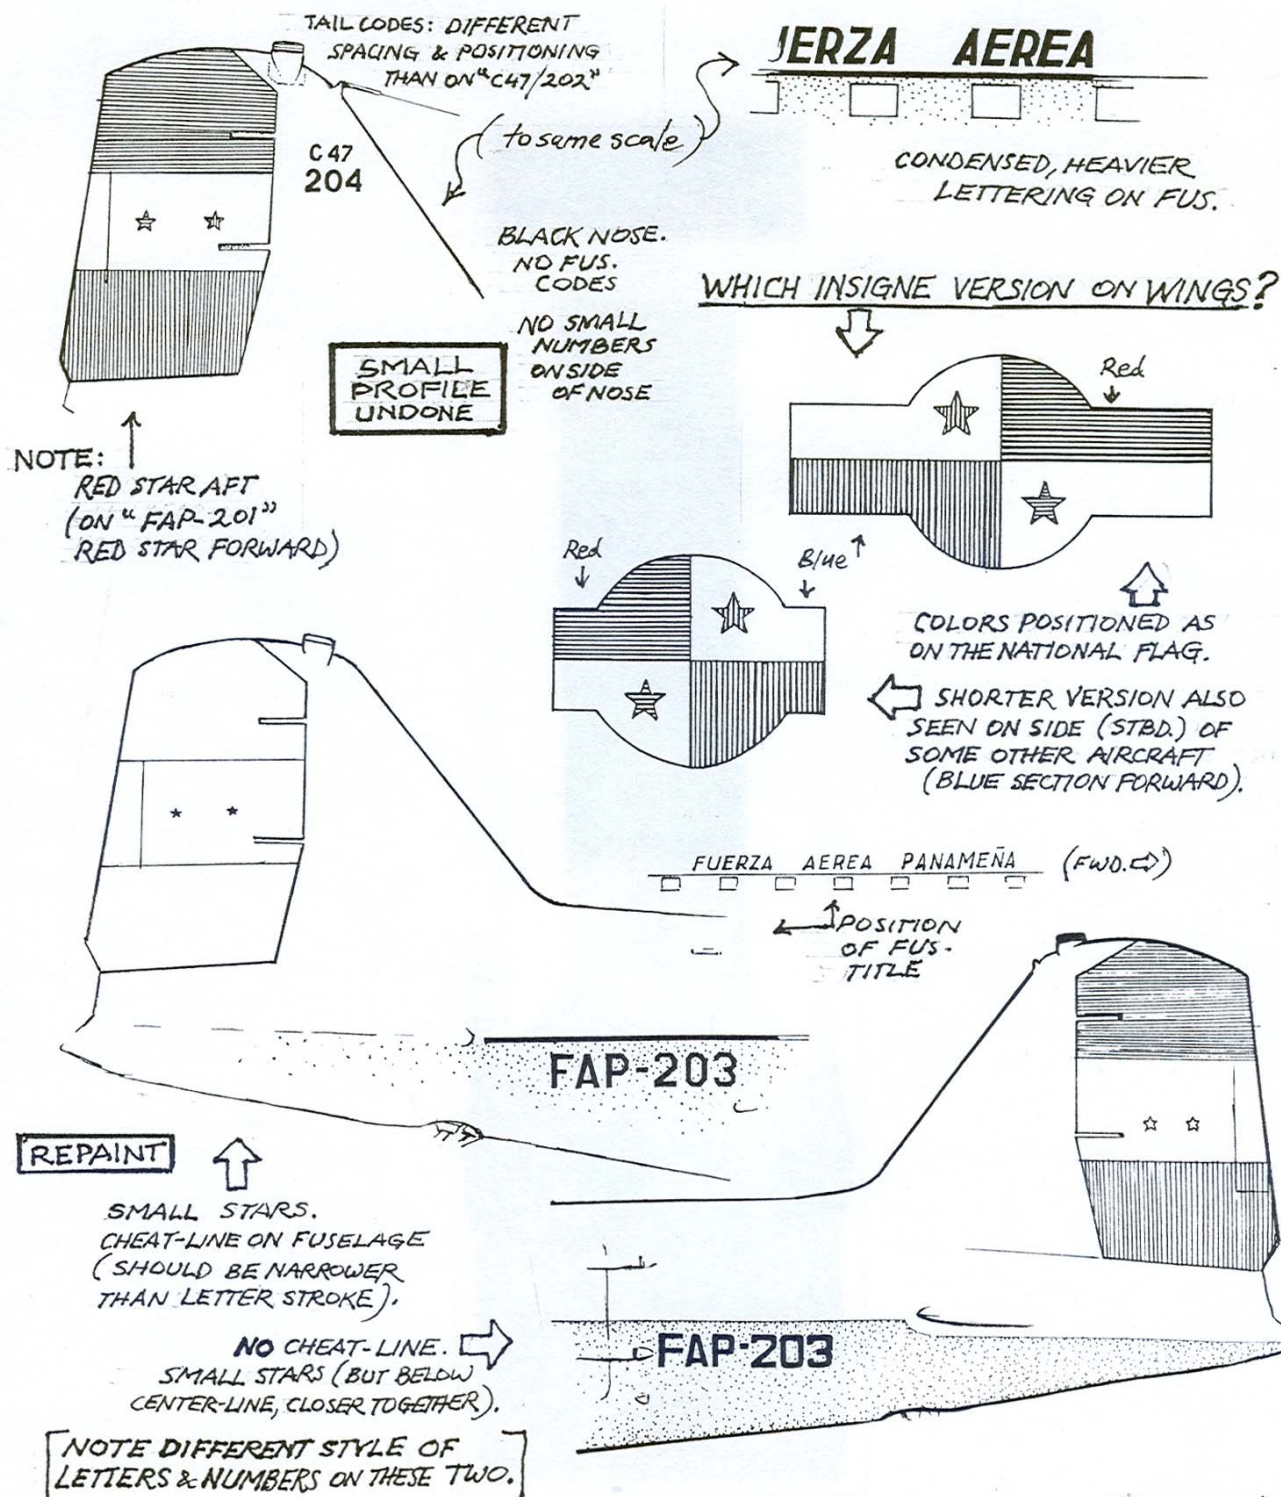 TAIL CODES: DIFFERENT
SPACING & POSITIONING
THAN ON "C47/202"
C 47
204
(to same scale)
UERZA AEREA
CONDENSED, HEAVIER
LETTERING ON FUS.
BLACK NOSE.
NO FUS.
CODES
NO SMALL
NUMBERS
ON SIDE
OF NOSE
SMALL
PROFILE
UNDONE
WHICH INSIGNE VERSION ON WINGS?
Red
NOTE:
RED STAR AFT
(ON "FAP-201"
RED STAR FORWARD)
Red
Blue
COLORS POSITIONED AS
ON THE NATIONAL FLAG.
SHORTER VERSION ALSO
SEEN ON SIDE (STBD.) OF
SOME OTHER AIRCRAFT
(BLUE SECTION FORWARD).
FUERZA AEREA PANAMEÑA (FWD.⇨)
POSITION
OF FUS-
TITLE
FAP-203
REPAINT
SMALL STARS.
CHEAT-LINE ON FUSELAGE
(SHOULD BE NARROWER
THAN LETTER STROKE).
NO CHEAT-LINE.
SMALL STARS (BUT BELOW
CENTER-LINE, CLOSER TOGETHER).
FAP-203
[NOTE DIFFERENT STYLE OF
LETTERS & NUMBERS ON THESE TWO.]